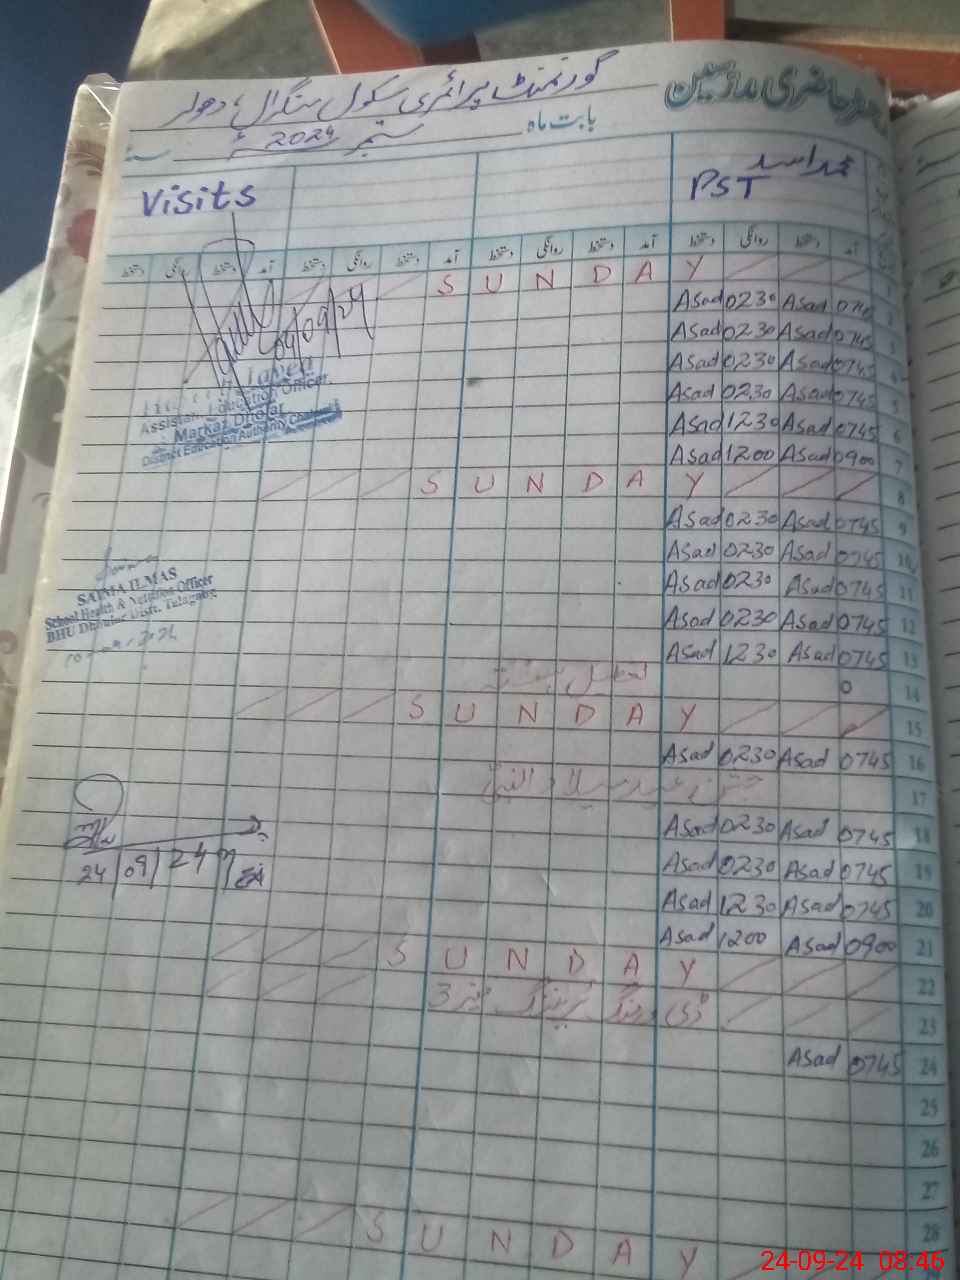 حاضری ملازمین
گورنمنٹ پرائمری سکول سنگرال دھولر
بابت ماہ ستمبر 2024 سنہ
محمد اسد
PST
Visits
آمد دستخط روانگی دستخط آمد دستخط روانگی دستخط آمد دستخط روانگی دستخط آمد دستخط روانگی دستخط
1 SUNDAY
2 0745 Asad 0230 Asad
3 0745 Asad 0230 Asad
4 0745 Asad 0230 Asad
5 0745 Asad 0230 Asad
6 0745 Asad 1230 Asad
7 0900 Asad 1200 Asad
8 SUNDAY
9 0745 Asad 0230 Asad
10 0745 Asad 0230 Asad
11 0745 Asad 0230 Asad
12 0745 Asad 0230 Asad
13 0745 Asad 1230 Asad
14 0
15 SUNDAY
16 0745 Asad 0230 Asad
17 جشن عید میلاد النبی
18 0745 Asad 0230 Asad
19 0745 Asad 0230 Asad
20 0745 Asad 1230 Asad
21 0900 Asad 1200 Asad
22 SUNDAY
23 ٹریننگ 3
24 0745 Asad
25
26
27
28
SUNDAY
04/09/24
Assistant Education Officer
Markaz Dholar
District Education Authority
SAIMA ILMAS
School Health & Nutrition Officer
BHU Dhoular Distt. Talagang
24/09/24
24-09-24 08:46